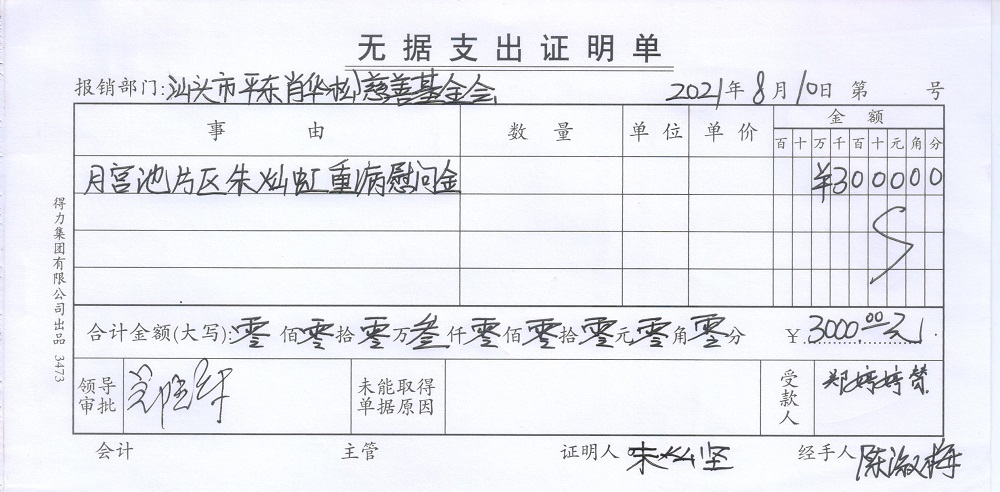 无据支出证明单
报销部门:汕头市平东肖华松慈善基金会 2021年8月10日 第 号
事 由 数 量 单 位 单 价 金 额
百 十 万 千 百 十 元 角 分
月宫池片区朱灿虹重病慰问金 ¥300000
合计金额(大写):零佰零拾零万叁仟零佰零拾零元零角零分 ¥3000.00元
领导审批 未能取得单据原因 受款人 郑婷婷
会计 主管 证明人 朱灿坚 经手人 陈淑梅
得力集团有限公司出品 3473